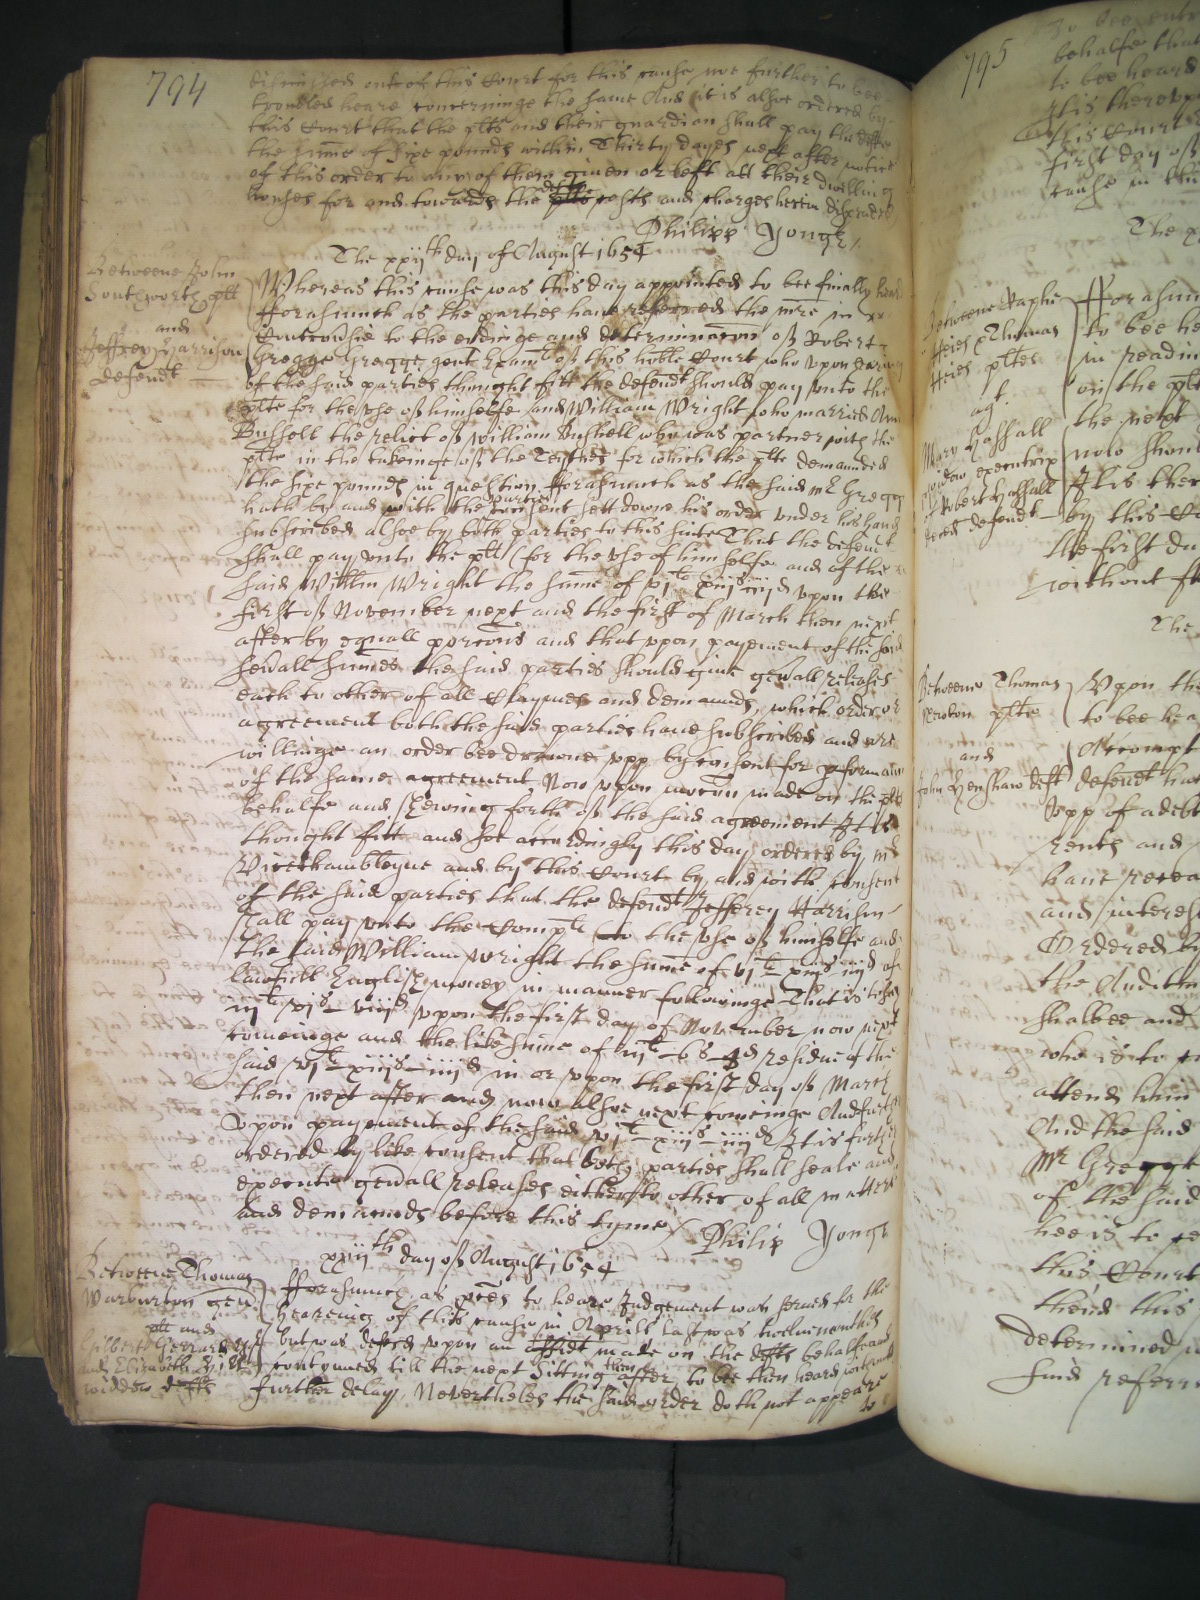 794
dismissed out of this Court for this cause not further to bee
troubled heare concerninge the same And it is alsoe ordered by
this Court that the plts and their guardian shall pay the defts
the sume of sixe pounds within Thirty dayes next after notice
of this order to any of them given or left att their dwelling
houses for and towards the defts costs and charges herein disbursed
Philipp Yonge
The xxijth day of August 1654
Betweene John
Southworth plt
and
Jeffrey Harrison
defendt
Whereas this cause was this day appointed to bee finally heard
Fforasmuch as the parties have referred the mre in
Controūsie to the endinge and determinacon of Robert
Gregge Gregge gent Exam of this hoble Court who upon hearing
of the said parties thought fitt the defendt should pay unto the
plte for the use of himselfe and William Wright who married Ann
Bushell the relict of William Bushell who was partner with the
plte in the takeinge of the Teythes for which the plte demanded
the sixe pounds in question Fforasmuch as the said mr Gregge
hath by and with the parties consent sett downe his order under his hand
subscribed alsoe by both parties to this suite That the defendt
shall pay unto the plt (for the use of himselfe and of the
said Willm Wright the sume of vjli xiijs iiijd upon the
first of November next and the first of March then next
after by equall porcons and that upon payement of the said
sevall sumes the said parties should give genall releases
each to other of all Claymes and demaunds, which order or
agreement both the said parties have subscribed and were
willinge an order bee drawne upp by consent for pformance
of the same agreement, Now upon mocon made on the plts
behalfe and shewing forth of the said agreement It is
thought fitt and soe accordingly this day ordered by mr
Vicechamberleyne and by this Court by and with consent
of the said parties that the defendt Jefferey Harrison
shall pay unto the Complt to the use of himselfe and
the said William Wright the sume of vjli xiijs iiijd of
lawfull English money in manner followinge That is to say
iijli vjs viijd upon the first day of November now next
comeinge and the like sume of iijli 6s 8d residue of the
said vjli xiijs iiijd in or upon the first day of March
then next after and now alsoe next comeinge And further
upon payement of the said vjli xiijs iiijd It is further
ordered by like consent that both parties shall seale and
execute genall releases either to other of all matters
and demaunds before this tyme
Philip Yonge
xxiijth day of August 1654
Betweene Thomas
Warburton gen
plt and
Gilbert Gerrard esqr
and Elizabeth
widdow defts
Fforasmuch as pces to heare Judgement was served for the
heareing of this cause in Aprill last was twelvemonths
but was deferd upon an affidt made on the defts behalfe and
contynued till the next Sitting then after to bee then heard without
further delay, Neverthelesse the said order doth not appeare
to
795
to bee entr
behalfe that
to bee heard
It is thereupo
this Court
first day of
cause in the
The x
Betweene Raphe
Heies Thomas
Heies pltes
agt.
Mary Hassall
widow executrix
of Robert Hassall
deced defendt
Fforasmu
to bee he
in readin
on the plt
the next
now shoul
It is ther
by this Co
the first da
without f
The
Betweene Thomas
Newton plte
and
John Henshaw deft
Upon the
to bee hea
Accompt
defendt hav
upp of a debt
rents and
have recea
and interest
Ordered by
the Auditor
shalbee and
who is to
attend him
And the said
Mr Gregge
of the said
hee is to
this Court
theird this
determined
said referr